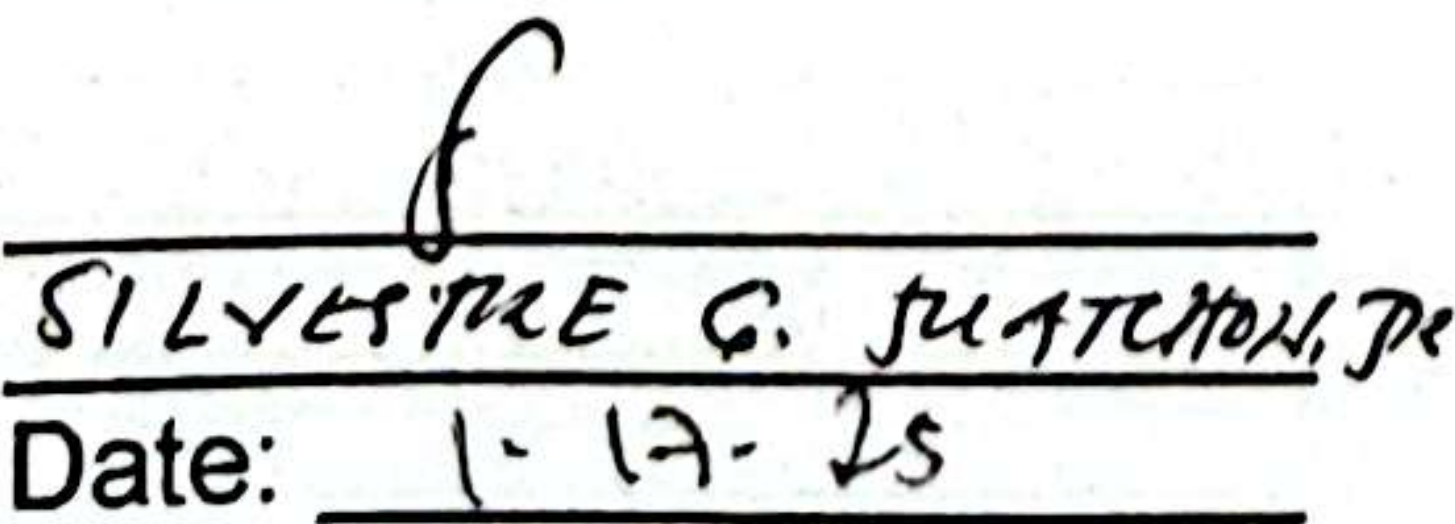 SILVESTRE G. JUATCHON, JR
Date: 1-17-25